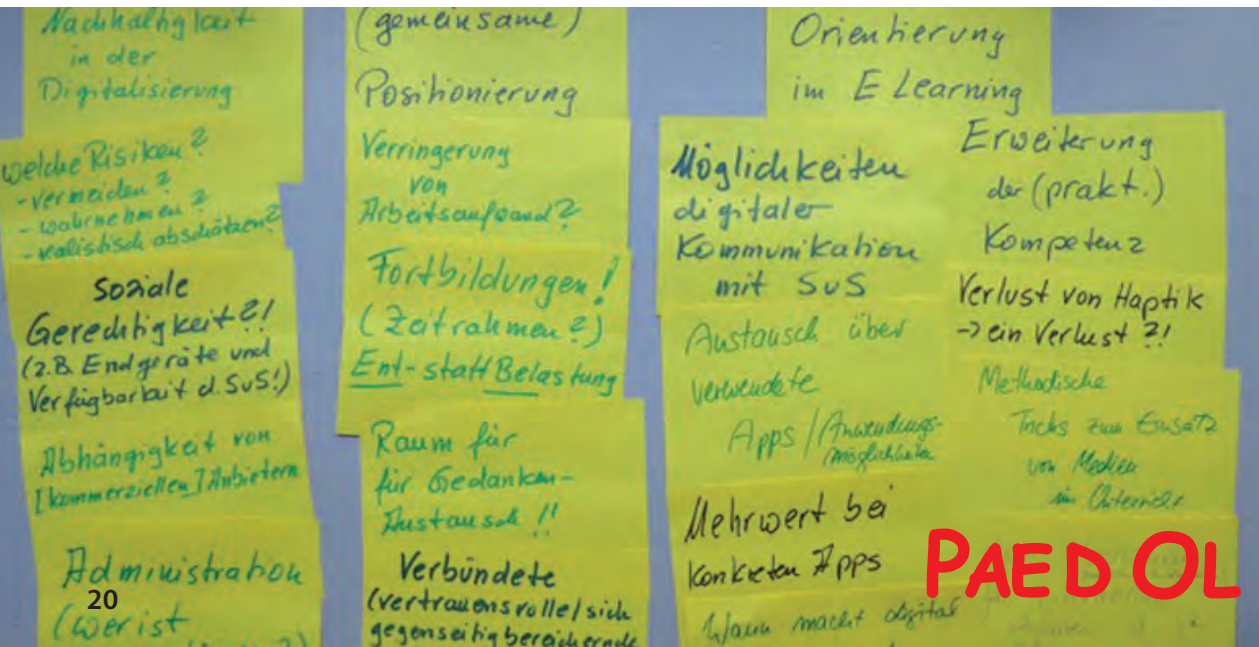 Nachhaltigkeit
in der
Digitalisierung
welche Risiken?
- vermeiden?
- wahrnehmen?
- realistisch abschätzen?
soziale
Gerechtigkeit?!
(z.B. Endgeräte und
Verfügbarkeit d. SuS!)
Abhängigkeit von
[kommerziellen] Anbietern
Administration
(wer ist
20
(gemeinsame)
Positionierung
Verringerung
von
Arbeitsaufwand?
Fortbildungen!
(Zeitrahmen?)
Ent- statt Belastung
Raum für
für Gedanken-
Austausch!!
Verbündete
(vertrauensrolle/sich
gegenseitig bereichernde
Orientierung
im E Learning
Möglichkeiten
digitaler
Kommunikation
mit SuS
Austausch über
verwendete
Apps / Anwendungs-
möglichkeiten
Mehrwert bei
konkreten Apps
Wann macht digital
Erweiterung
der (prakt.)
Kompetenz
Verlust von Haptik
-> ein Verlust?!
Methodische
Tricks zum Einsatz
von Medien
im Unterricht
PAED OL